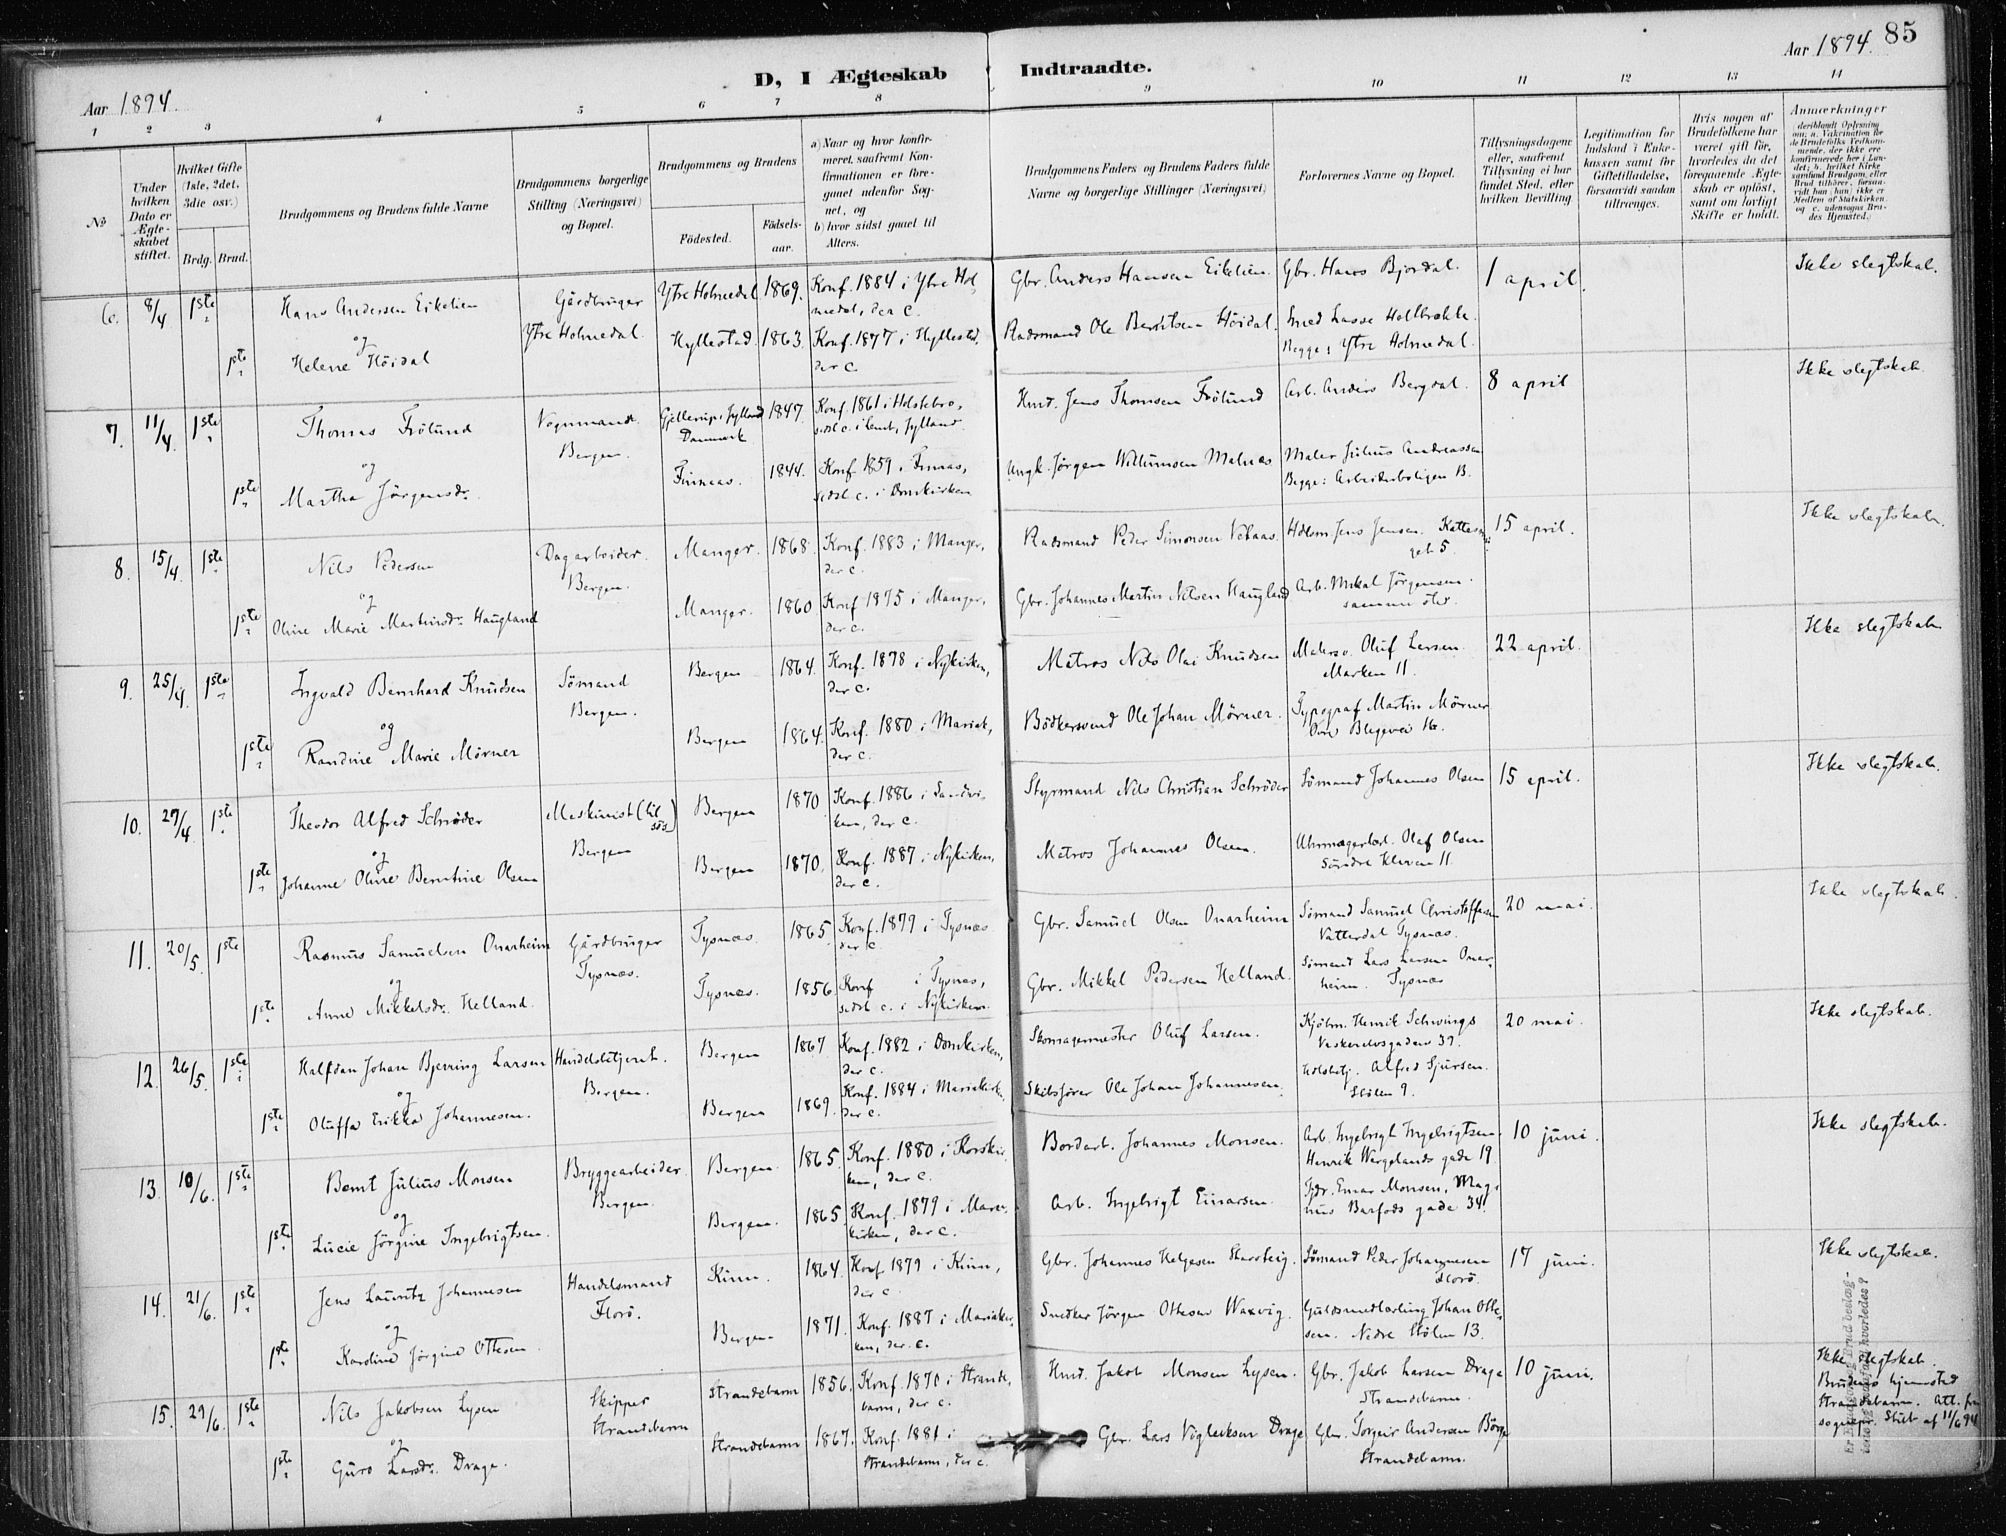 Aar 1894.
D, I Ægteskab Indtraadte.
Aar 1894. 85
1 2 3 4 5 6 7 8 9 10 11 12 13 14
No
Under hvilken Dato er Ægteskabet stiftet.
Hvilket Gifte (1ste, 2det, 3die osv.)
Brdg. Brud.
Brudgommens og Brudens fulde Navne
Brudgommens borgerlige Stilling (Næringsvei) og Bopæl.
Brudgommens og Brudens
Födested. Födselsaar.
a) Naar og hvor konfirmeret, saafremt Konfirmationen er foregaaet udenfor Sognet, og
b) hvor sidst gaaet til Alters.
Brudgommens Faders og Brudens Faders fulde Navne og borgerlige Stillinger (Næringsvei)
Forlovernes Navne og Bopæl.
Tillysningsdagene eller, saafremt Tillysning ei har fundet Sted, efter hvilken Bevilling
Legitimation for Indskud i Enkekassen samt for Giftetilladelse, forsaavidt saadan tiltrænges.
Hvis nogen af Brudefolkene har været gift för, hvorledes da det foregaaende Ægteskab er oplöst, samt om lovligt Skifte er holdt.
Anmærkninger (deriblandt Oplysning om: a. Vakcination for de Brudefolks Vedkommende, der ikke ere konfirmerede her i Landet; b. hvilket Kirkesamfund Brudgom eller Brud tilhörer, forsaavidt han (hun) ikke er Medlem af Statskirken, og c. udensogns Brudes Hjemsted.)
6. 8/4 1ste Hans Andersen Eikelien Gårdbruger Ytre Holmedal 1869. Konf. 1884 i Ytre Holmedal, der c. Gbr. Anders Hansen Eikelien. Gbr. Hans Bjordal. 1 april. Ikke slegtskab.
og Ytre Holmedal.
1ste Helene Höidal Hyllestad. 1863. Konf. 1877 i Hyllestad, der c. Radsmand Ole Berntsen Höidal. Smed Lasse Holtbrekke. Begge: Ytre Holmedal.
7. 11/4 1ste Thomas Frölund Vognmand Gjellerup, Jylland Danmark 1847 Konf. 1861 i Holstebro, sidst c. i Lemt, Jylland. Hmd. Jens Thomsen Frölund Arb. Anders Bergdal. 8 april Ikke slegtskab.
og Bergen.
1ste Martha Jörgensdr. Finnaas. 1844. Konf 1859 i Finaas, sidst c. i Domkirken Ungk. Jörgen Willumsen Malnes Maler Julius Andreassen Begge: Arbeiderboligen B.
8. 15/4. 1ste Nils Pedersen Dagarbeider. Manger. 1868. Konf. 1883 i Manger, der c. Radsmand Peder Simonsen Vetaas. Hdlsm. Jens Jensen. 15 april. Ikke slegtskab.
og Bergen.
1ste Oline Marie Martinsdr. Haugland Manger. 1860 Konf 1875 i Manger, der c. Gbr. Johannes Martin Nilsen Haugland Arb. Mikal Jörgensen. samme sted.
9. 25/4. 1ste Ingvald Bernhard Knudsen Sömand Bergen 1864. Konf. 1878 i Nykirken, der c. Matros Nils Olai Knudsen Malersv. Oluf Larsen. Marken 11. 22 april. Ikke slegtskab.
og Bergen.
1ste Randine Marie Mörner Bergen 1864. Konf. 1880 i Mariak, der c. Bödkersvend Ole Johan Mörner. Typograf Martin Mörner Övre Blegevei 16.
10. 27/4. 1ste Theodor Alfred Schröder Maskinist (tilsös) Bergen 1870 Konf. 1886 i Sandviken, der c. Styrmand Nils Christian Schröder Sömand Johannes Olsen 15 april. Ikke slegtskab.
og Bergen
1ste Johanne Oline Berntine Olsen Bergen 1870. Konf. 1887 i Nykirken, der c. Matros Johannes Olsen. Uhrmagerlærl. Olaf Olsen Söndre Kleven 11
11. 20/5. 1ste Rasmus Samuelsen Onarheim Gårdbruger Tysnæs. 1865. Konf. 1879 i Tysnæs der c. Gbr. Samuel Olsen Onarheim Sömand Samuel Christoffersen Vatterdal Tysnæs. 20 mai. Ikke slegtskab.
og Tysnæs.
1ste Anne Mikkelsdr. Helland. Tysnæs. 1856. Konf i Tysnæs, sidst c. i Nykirken. Gbr. Mikkel Pedersen Helland. Sömand Lars Larsen Onarheim. Tysnæs
12. 26/5. 1ste Halfdan Johan Bjerring Larsen Handelsbetjent. Bergen 1867 Konf. 1882 i Domkirken, der c. Skomagermester Oluf Larsen. Kjöbm. Henrik Schwings Vaskerelvsgaden 39. 20 mai. Ikke slegtskab.
og Bergen.
1ste Oluffa Erikka Johannesen. Bergen 1869. Konf. 1884 i Mariakirk, der c. Skibsförer Ole Johan Johannesen. Hdlsbtj. Alfred Sjursen. Stölen 9.
13. 10/6. 1ste Bernt Julius Monsen Bryggearbeider. Bergen. 1865. Konf. 1880 i Korskirken, der c. Bordarb. Johannes Monsen. Arb. Ingebrigt Ingebrigtsen. Henrik Wergelands gade 19 10 juni. Ikke slegtskab.
og Bergen.
1ste Lucie Jörgine Ingebrigtsen. Bergen. 1865. Konf. 1879 i Mariakirken, der c. Arb. Ingebrigt Einarsen. Einar Monsen, Magnus Barfods gade 34.
14. 21/6. 1ste Jens Lauritz Johannesen Handelsmand Kinn. 1864. Konf 1879 i Kinn, der c. Gbr. Johannes Helgesen Sömand Peder Johannesen Florö. 17 juni. Ikke slegtskab.
og Florö.
1ste Karoline Jörgine Ottesen Bergen 1871. Konf. 1887 i Mariakirken, der c. Snedker Jörgen Ottesen Waxvig. Guldsmedlærling Johan Ottesen. Nedre Stölen 13.
15. 29/6. 1ste Nils Jakobsen Lysen Skipper Strandebarm 1856. Konf. 1870 i Strandebarm, der c. Hmd. Jakob Monsen Lysen. Gbr. Jakob Larsen Drage Strandebarm. 10 juni. Ikke slegtskab. Brudens hjemsted Strandebarm. Att. fra sognepr. af 11/6 94
og Strandebarm
1ste Guro Larsdr. Drage. Strandebarm 1867. Konf. 1881 i Strandebarm, der c. Gbr. Lars Vigleiksen Drage Gbr. Torgeir Andersen Börge Strandebarm.